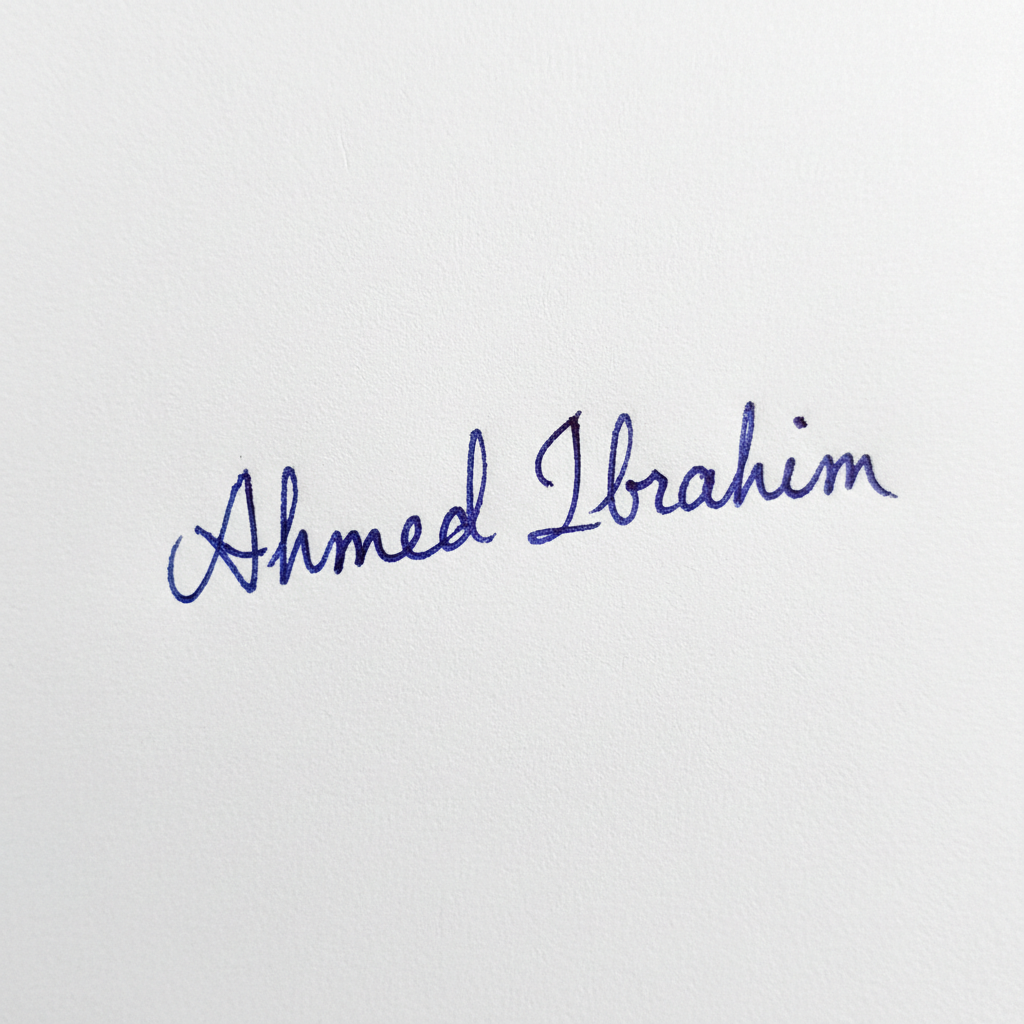 Ahmed Ibrahim